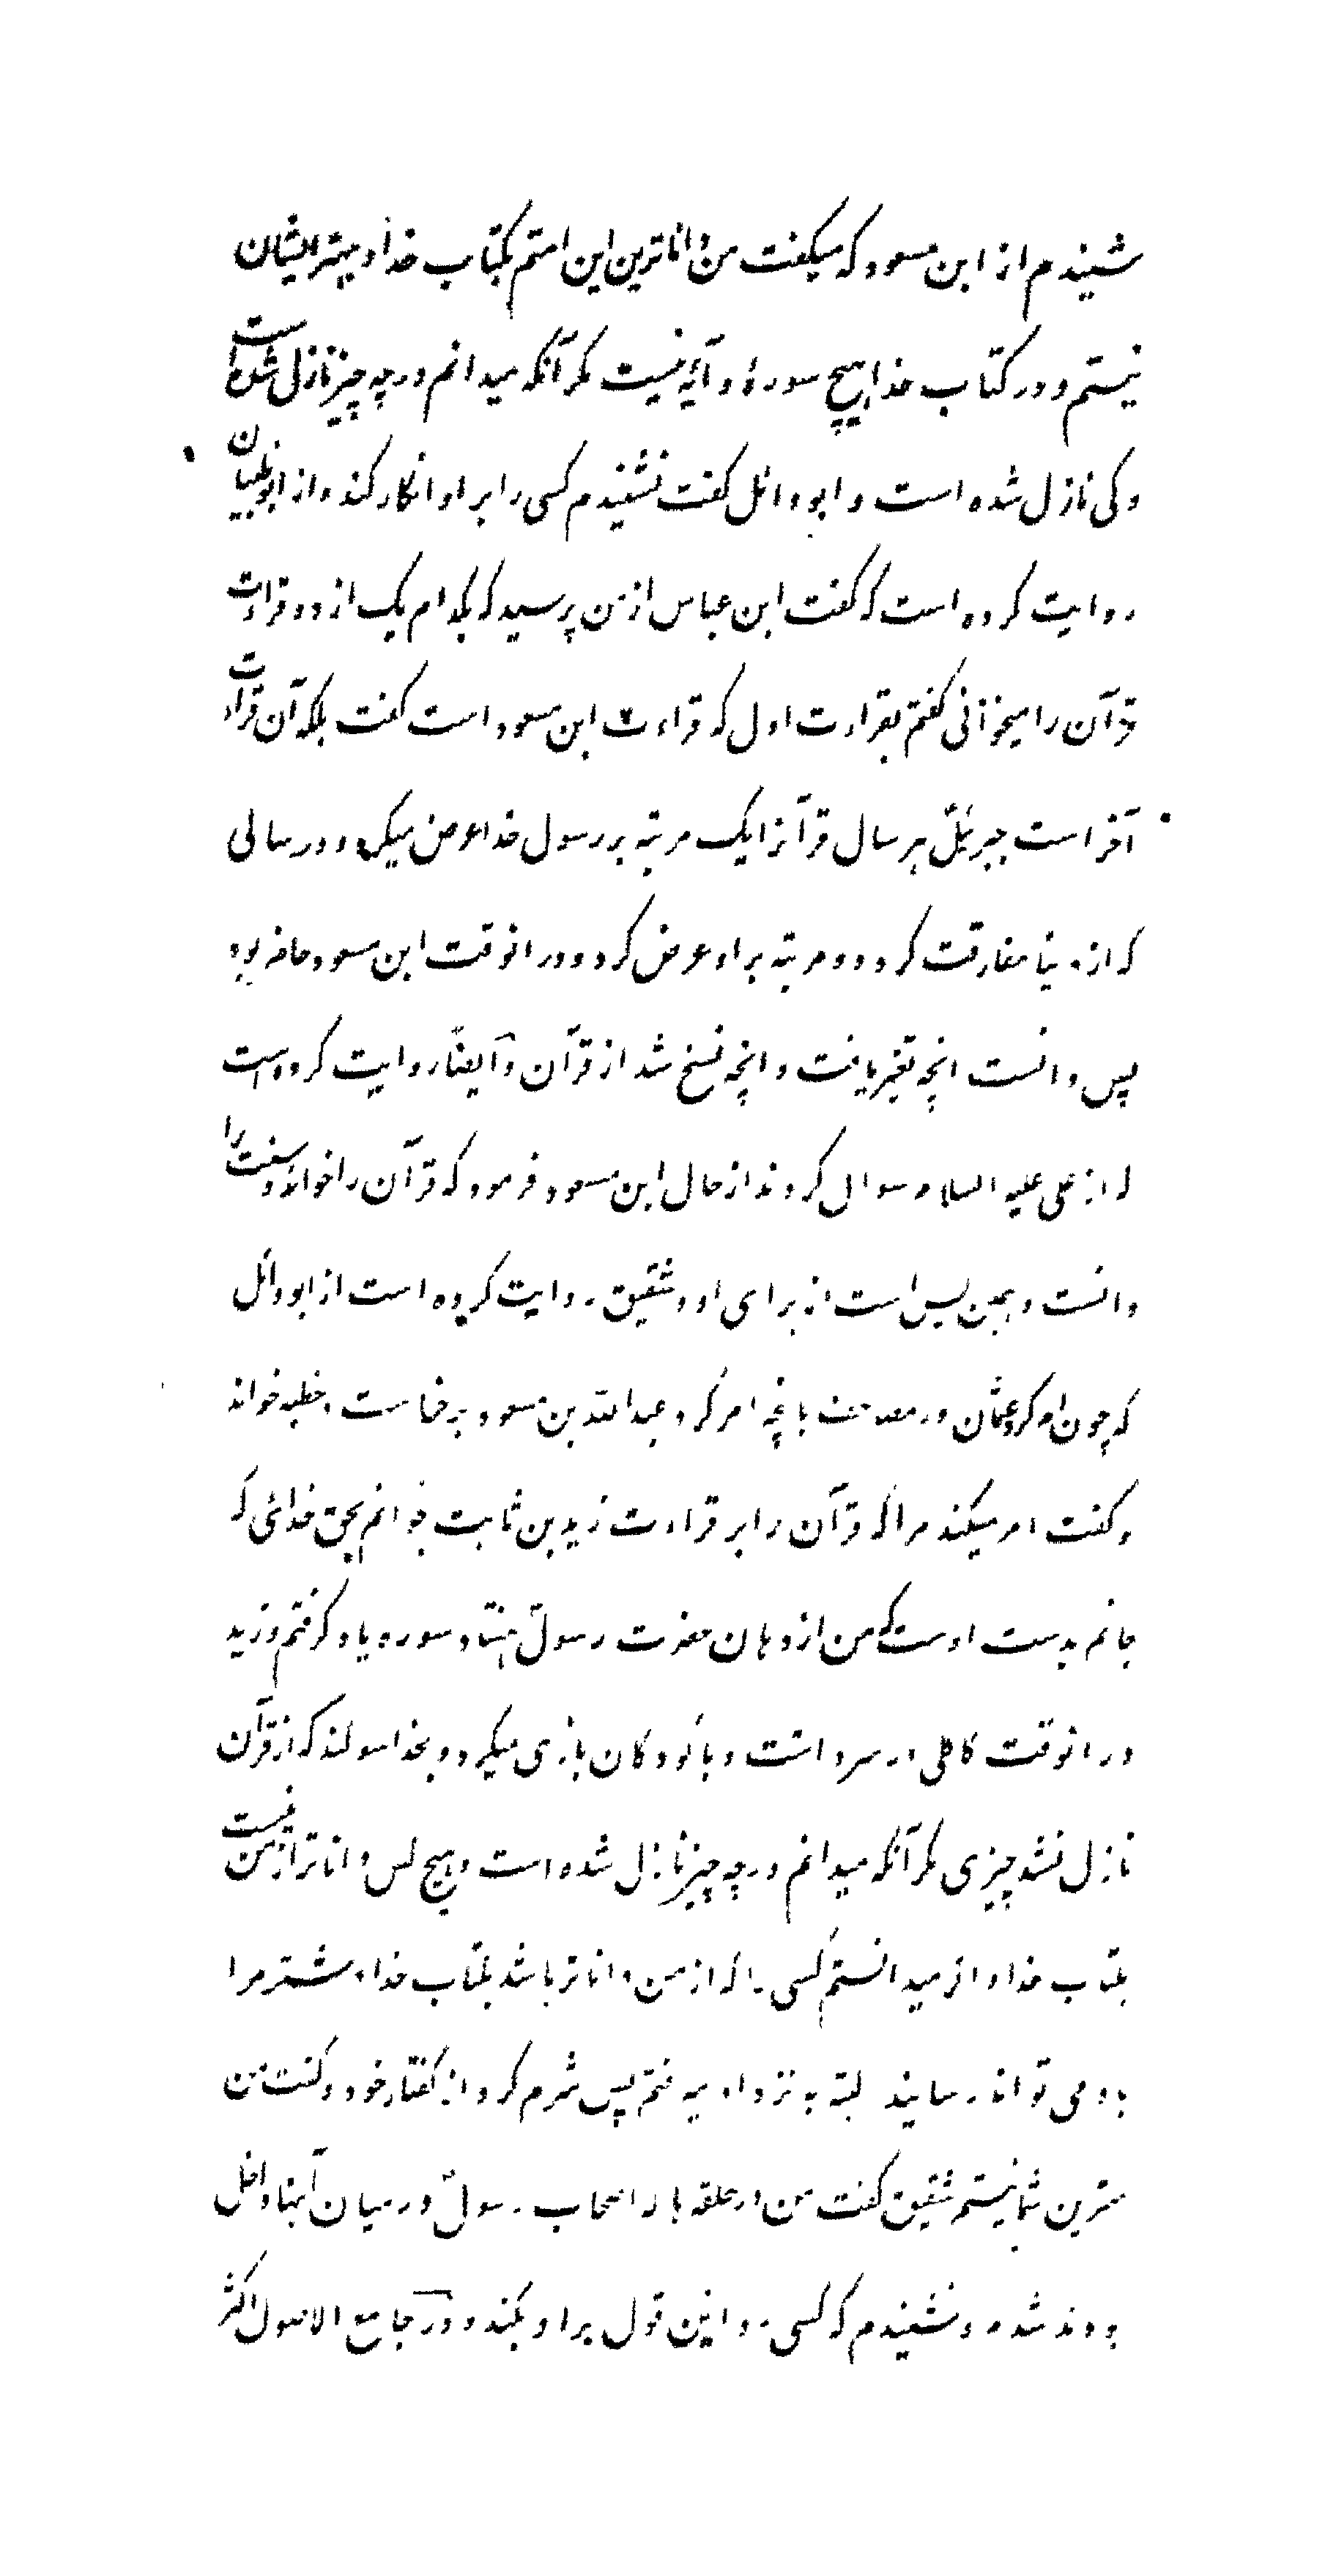 شنیدم از ابن مسعود که میکفت من داناترین این امتم بکتاب خدا و بهتر ایشان
نیستم و در کتاب خدا هیچ سورهٔ و آیهٔ نیست مکر آنکه میدانم در چه چیز نازل شده است
و کی نازل شده است و ابو وائل کفت نشنیدم کسی را بر او انکار کند و از ابو ظبیان
روایت کرده است که کفت ابن عباس از من پرسید که بکدام یک از دو قراءت
قرآن را میخوانی کفتم بقراءت اول که قراءت ابن مسعود است کفت بلکه آن قراءت
آخر است جبرئیل هر سال قرآنرا یک مرتبه بر رسول خدا عرض میکرد و در سالی
که از دنیا مفارقت کرد دو مرتبه بر او عرض کرد و در انوقت ابن مسعود حاضر بود
پس دانست انچه تغیر یافت و انچه نسخ شد از قرآن و ایضاً روایت کرده است
که از علی علیه السلام سوال کردند از حال ابن مسعود فرمود که قرآن را خواند و سنت را
دانست و همین بس است از برای او و شقیق روایت کرده است از ابو وائل
که چون امر کرد عثمان در مصاحف بانچه امر کرد عبدالله بن مسعود برخاست و خطبه خواند
و کفت امر میکند مرا که قرآن را بر قراءت زید بن ثابت بخوانم بحق خدائی که
جانم بدست اوست که من از دهان حضرت رسول هفتاد سوره یاد کرفتم و زید
در انوقت کاکلی در سر داشت و با کودکان بازی میکرد و بخدا سوکند که از قرآن
نازل نشد چیزی مکر آنکه میدانم در چه چیز نازل شده است و هیچ کس داناتر از من نیست
بکتاب خدا و اکر میدانستم کسی را که از من داناتر باشد بکتاب خدا و شتر مرا
باو می توانا رسانید البته به نزد او میرفتم پس شرم کرد از کفتار خود و کفت من
بهترین شما نیستم شقیق کفت من در حلقه های اصحاب رسول در میان آنها داخل
بودند شدم و نشنیدم که کسی رد این قول بر او بکند و در جامع الاصول اکثر